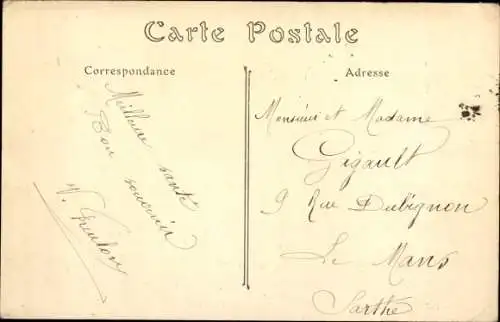 Carte Postale
Correspondance
Meilleure santé
Bon souvenir
Adresse
Monsieur et Madame
Gigault
9 Rue Dubignon
Le Mans
Sarthe